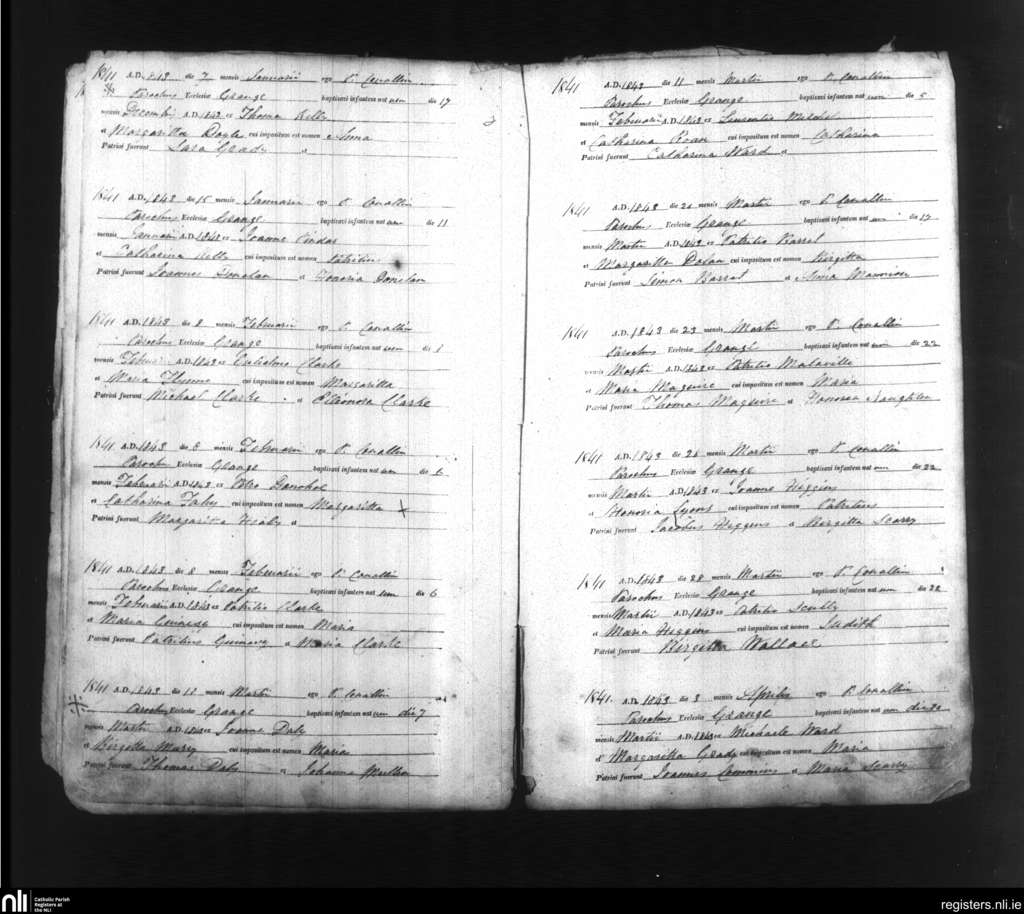 1841 A.D. 1843 die 7 mensis Januarii ego P. Conallin
Parochus Ecclesiæ Grange baptizavi infantem natum die 17
mensis Decembri A.D. 1842 ex Thoma Kelly
et Margaritta Doyle cui impositum est nomen Anna
Patrini fuerunt Sara Grady et
1841 A.D. 1843 die 15 mensis Januarii ego P. Conallin
Parochus Ecclesiæ Grange baptizavi infantem natum die 11
mensis Januarii A.D. 1843 ex Joanne
et Catharina Kelly cui impositum est nomen Patritius
Patrini fuerunt Joannes Donelan et Honoria Donelan
1841 A.D. 1843 die 8 mensis Februarii ego P. Conallin
Parochus Ecclesiæ Grange baptizavi infantem natum die 1
mensis Februarii A.D. 1843 ex Clarke
et Maria Flynne cui impositum est nomen Margaritta
Patrini fuerunt Michael Clarke et Elleonora Clarke
1841 A.D. 1843 die 8 mensis Februarii ego P. Conallin
Parochus Ecclesiæ Grange baptizavi infantem natum die 6
mensis Februarii A.D. 1843 ex Petro Donohoe
et Catharina Fahy cui impositum est nomen Margaritta
Patrini fuerunt Margaritta et
1841 A.D. 1843 die 8 mensis Februarii ego P. Conallin
Parochus Ecclesiæ Grange baptizavi infantem natum die 6
mensis Februarii A.D. 1843 ex Patritio Clarke
et Maria cui impositum est nomen Maria
Patrini fuerunt Patritius et Maria Clarke
1841 A.D. 1843 die 11 mensis Martii ego P. Conallin
Parochus Ecclesiæ Grange baptizavi infantem natum die 7
mensis Martii A.D. 1843 ex Joanne Daly
et Birgitta cui impositum est nomen Maria
Patrini fuerunt Thomas Daly et Johanna
1841 A.D. 1843 die 11 mensis Martii ego P. Conallin
Parochus Ecclesiæ Grange baptizavi infantem natum die 5
mensis Februarii A.D. 1843 ex Laurentio
et Catharina cui impositum est nomen Catharina
Patrini fuerunt Catharina Ward et
1841 A.D. 1843 die 20 mensis Martii ego P. Conallin
Parochus Ecclesiæ Grange baptizavi infantem natum die 17
mensis Martii A.D. 1843 ex Patritio
et Margaritta Dolan cui impositum est nomen Birgitta
Patrini fuerunt Simon Barrat et Anna
1841 A.D. 1843 die 23 mensis Martii ego P. Conallin
Parochus Ecclesiæ Grange baptizavi infantem natum die 22
mensis Martii A.D. 1843 ex Patritio
et Maria Maguire cui impositum est nomen Maria
Patrini fuerunt Thomas Maguire et Honorea Naughten
1841 A.D. 1843 die 26 mensis Martii ego P. Conallin
Parochus Ecclesiæ Grange baptizavi infantem natum die 22
mensis Martii A.D. 1843 ex Joanne Higgins
et Honoria Lyons cui impositum est nomen Patritius
Patrini fuerunt Jacobus Higgins et Birgitta Scarry
1841 A.D. 1843 die 28 mensis Martii ego P. Conallin
Parochus Ecclesiæ Grange baptizavi infantem natum die 22
mensis Martii A.D. 1843 ex Patritio Scully
et Maria Higgins cui impositum est nomen Judith
Patrini fuerunt Birgitta Wallace
1841. A.D. 1843 die 3 mensis Aprilis ego P. Conallin
Parochus Ecclesiæ Grange baptizavi infantem natum die 20
mensis Martii A.D. 1843 ex Michaele Ward
et Margaritta Grady cui impositum est nomen Maria
Patrini fuerunt Joannes Commins et Maria Scarry
nli
Catholic Parish
Registers at
the NLI
registers.nli.ie